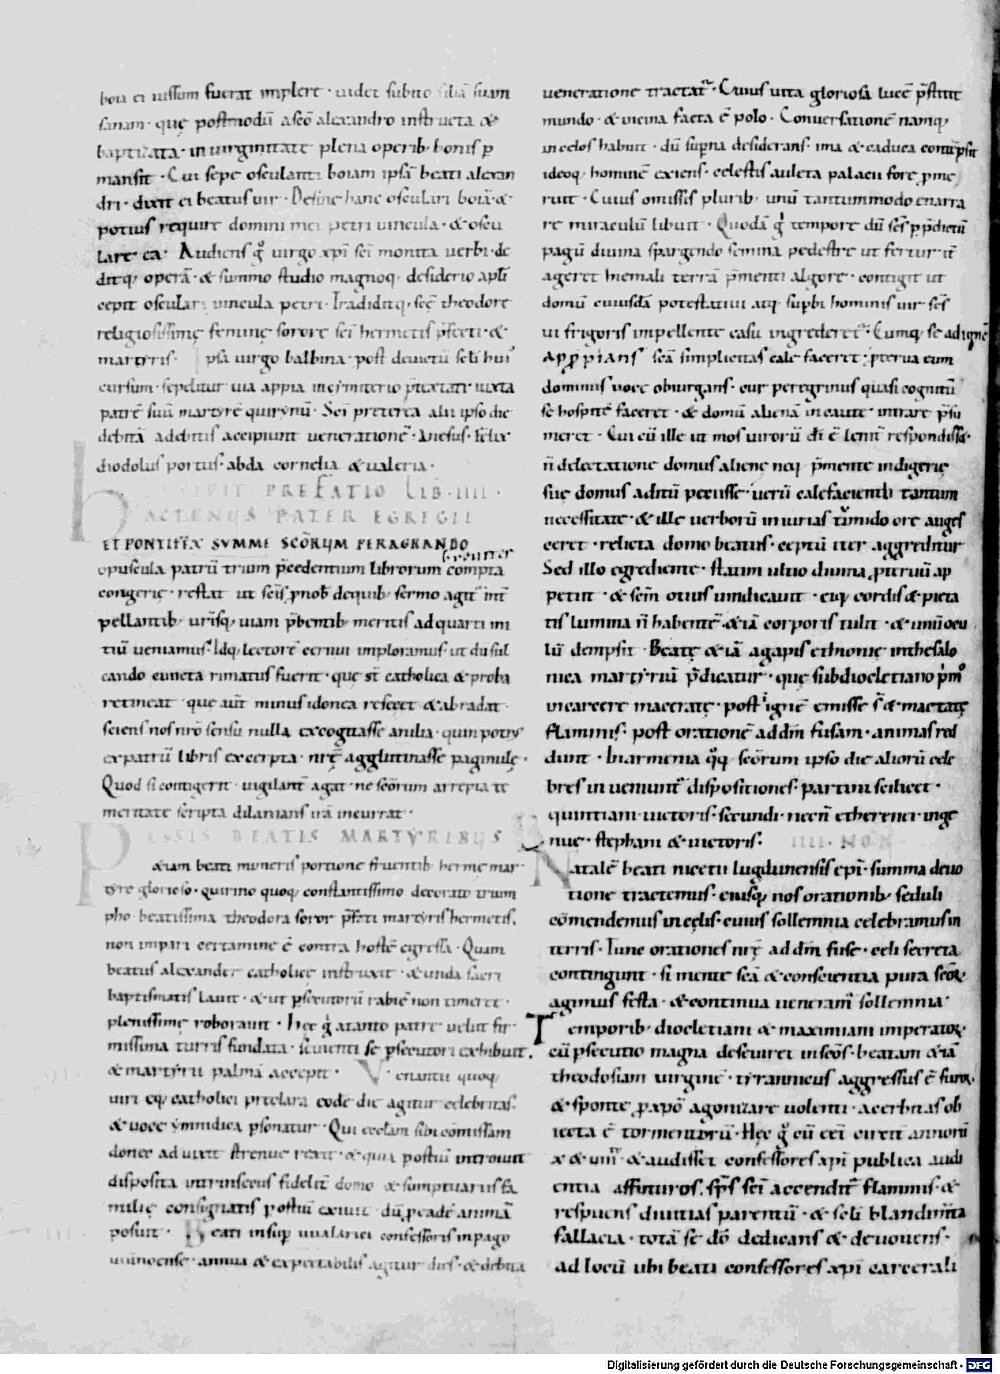 boia ei iussum fuerat implere · uidet subito filiã suam
sanam · que postmodũ a sc̃o alexandro instructa &
baptizata · in uirginitate plena operib; bonis p̲
mansit · Cui sepe osculanti boiam ipsã beati alexan
dri · dixit ei beatus uir · Desine hanc osculari boiã · &
potius require domini mei petri uincula · & oscu
lare ea · Audiens g̊ uirgo xp̃i sc̃i monita uerbi · de
ditq; operã · & summo studio magnoq; desiderio apl̃i
cepit osculari uincula petri · Tradiditq; sc̃e theodore
religiosissime femine sorore sc̃i hermetis p̃fecti · &
martyris · Ipsa uirgo balbina · post deuictũ sc̃li hui᾽
cursum · sepelitur uia appia in cimiterio p̃textati · iuxta
patrẽ suũ martyrẽ quirinũ · Sc̃i preterea alii ipso die
debitã a debitis accipiunt uenerationẽ · Anesus · Felix
diodolus portus · abda cornelia & ualeria ·
INCIPIT PREFATIO LIB · IIII ·
HACTENUS PATER EGREGIE
ET PONTIFEX SVMME SCÕRUM PERAGRANDO
breuiter
opuscula patrũ trium p̃cedentium librorum compta
congerie · restat ut sc̃is p̱nob; dequib; sermo agit᾽ int̃
pellantib; urisq; uiam p̃bentib; meritis ad quarti ini
tiũ ueniamus · Idq; lectorẽ cernui imploramus · ut du sul
cando cuncta rimatus fuerit · que st̃ catholica & proba
retineat · que aut̃ minus idonea resecet & abradat ·
sciens nos nr̃o sensu nulla excogitasse anilia · quin potius
ex patrũ libris excerpta · nr̃e agglutinasse paginule ·
Quod si contigerit · uigilant̃ agat · ne sc̃orum arrepta te
meritate scripta dilanians irã incurrat ·
PASSIS BEATIS MARTYRIBUS
&iam beati muneris portione fruentib; herme mar
tyre glorioso · quirino quoq; constantissimo decorato trium
pho · beatissima theodora soror p̃fecti martyris hermetis ·
non impari certamine ẽ contra hostẽ egressa · Quam
beatus alexander catholice instruxit · & unda sacri
baptismatis lauit · & ut p̱secutorũ rabiẽ non timeret ·
plenissime roborauit · Hec g̊ a tanto patre uelut fir
missima turris fundata · seuienti se p̱secutori exhibuit ·
& martyrii palmã accepit · Venantii quoq;
uiri eq; catholici preclara eode die agitur celebritas ·
& uoce ymnidica p̱sonatur · Qui ecclam sibi cõmissam
donec aduixit strenue rexit · & quia postuũ introiuit
disposita intrinsecus fidelit̃ domo & sumptuariis fa
milie consignatis postuũ exiuit · dũ p̱eadẽ animã
posuit · Beati insup̲ uualarici confessoris in pago
uuinocense · annua & expectabilis agitur dies · & debita
ueneratione tractat᾽ · Cuius uita gloriosa lucẽ p̃stitit
mundo · & uicina facta ẽ polo · Conuersationẽ namq;
in celos habuit · dũ sup̱na desiderans · ima & caduca contẽpsit
ideoq; hominẽ exiens · celestis auleta palacii fore p̱me
ruit · Cuius omissis plurib; unũ tantummodo enarra
re miraculũ libuit · Quodã g̊ tempore dũ sc̃s p̱p̃dictũ
pagũ diuina spargendo semina pedestre ut fertur it̃
ageret hiemali terrã p̃menti algore · contigit ut
domũ cuiusdã potestatiui atq; sup̱bi hominis uir sc̃s
ui frigoris impellente casu ingrederet᾽ · Cumq; se ad ignẽ
app̱p̱ians sc̃a simplicitas cale faceret · p̱terua eum
dominus uoce obiurgans · cur peregrinus quasi cognitũ
se hospitẽ faceret · & domũ alienã incaute intrare p̃su
meret · Cui cũ ille ut mos uirorũ dĩ ẽ lenit̃ respondisset ·
ñ delectatione domus aliene neq; p̃mente indigerie
sue domus aditũ p&isse · uerũ calefacienti tantum
necessitate · & ille uerborũ iniurias tumido ore auges
ceret · relicta domo beatus · ceptũ iter aggreditur
Sed illo egrediente · statim ultio diuina p̱teruiũ ap
petiit · & sc̃m ocius uindicauit · eiq; cordis & pieta
tis lumina ñ habentẽ · &iã corporis tulit · & unũ ocu
lũ dempsit · Beate &iã agapis et hionie in thesalo
nica martyriũ p̃dicatur · que sub diocletiano p̱mo᾽
in carcere macerate · post igne emisse st̃ & mactate
flammis · post orationẽ ad dm̃ fusam · animas red
dunt · In armenia q̊q; sc̃orum ipso die aliorũ cele
bres inueniunt᾽ dispositiones · partini scilicet ·
quintiani · uictoris · secundi · necñ etherenei · inge
nue · stephani & uictoris ·
IIII · NON
Natale beati nicetii lugdunensis ep̃i · summa deuo
tione tractemus · eiusq; nos orationib; seduli
cõmendemus in celis · cuius sollemnia celebramus in
terris · Tunc orationes nr̃e ad dm̃ fuse · celi secreta
contingunt · si mente sc̃a & conscientia pura sc̃orꝝ
agimus festa · & continua ueneram᾽ sollemnia ·
Temporib; diocletiani & maximiani imperatorꝝ ·
cũ p̱secutio magna deseuiret in sc̃os · beatam &iã
theodosiam uirginẽ · tyrannicus aggressus ẽ furor
& sponte p̱ xp̃o agonizare uolenti · acerbitas ob
iecta ẽ tormentorũ · Hec g̊ cũ eẽt circit᾽ annorũ
x & uiii᾽ & audisset confessores xp̃i publica audi
entia affinituros · sp̃s sc̃i accendit᾽ flammis · &
respuens diuitias parentũ · & scl̃i blandimta
fallacia · totã se dõ dedicans & deuouens ·
ad locũ ubi beati confessores xp̃i carcerali
Digitalisierung gefördert durch die Deutsche Forschungsgemeinschaft - DFG